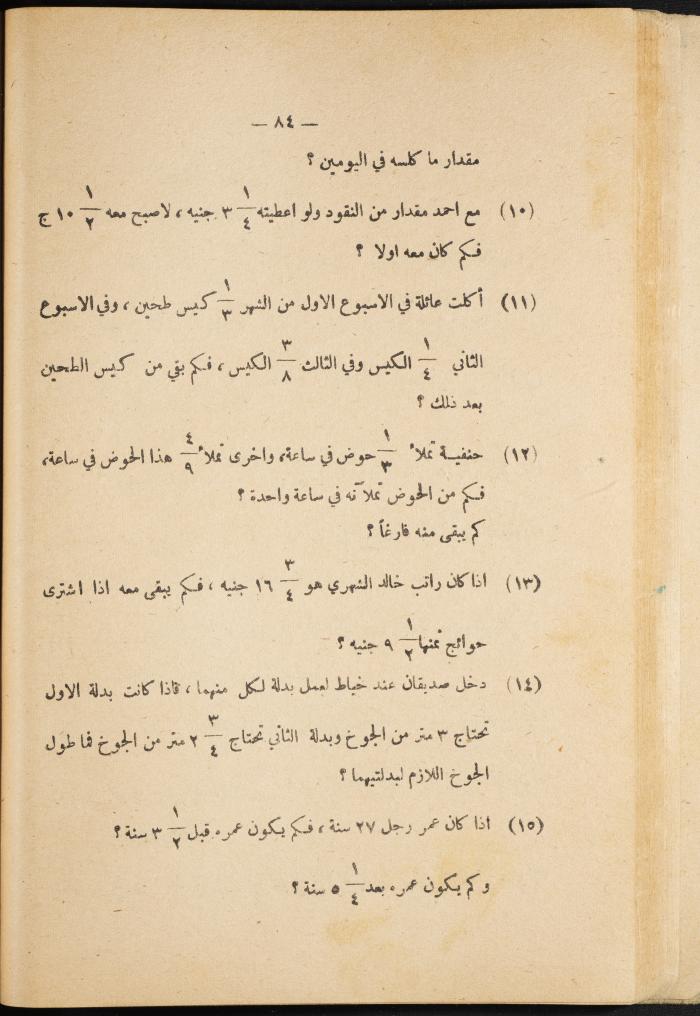 — ٨٤ —
مقدار ما كلسه في اليومين ؟
(١٠) مع احمد مقدار من النقود ولو اعطيته ١/٤ ٣ جنيه ، لاصبح معه ١/٢ ١٠ ج
فكم كان معه اولا ؟
(١١) أكلت عائلة في الاسبوع الاول من الشهر ١/٣ كيس طحين ، وفي الاسبوع
الثاني ١/٤ الكيس وفي الثالث ٣/٨ الكيس ، فكم بقي من كيس الطحين
بعد ذلك ؟
(١٢) حنفية تملأ ١/٣ حوض في ساعة، واخرى تملأ ٤/٩ هذا الحوض في ساعة،
فكم من الحوض تملآنه في ساعة واحدة ؟
كم يبقى منه فارغاً ؟
(١٣) اذا كان راتب خالد الشهري هو ٣/٤ ١٦ جنيه ، فكم يبقى معه اذا اشترى
حوائج ثمنها ١/٢ ٩ جنيه ؟
(١٤) دخل صديقان عند خياط لعمل بدلة لكل منهما ، فاذا كانت بدلة الاول
تحتاج ٣ متر من الجوخ وبدلة الثاني تحتاج ٣/٤ ٢ متر من الجوخ فما طول
الجوخ اللازم لبدلتيهما ؟
(١٥) اذا كان عمر رجل ٢٧ سنة ، فكم يكون عمره قبل ١/٢ ٣ سنة ؟
وكم يكون عمره بعد ١/٤ ٥ سنة ؟